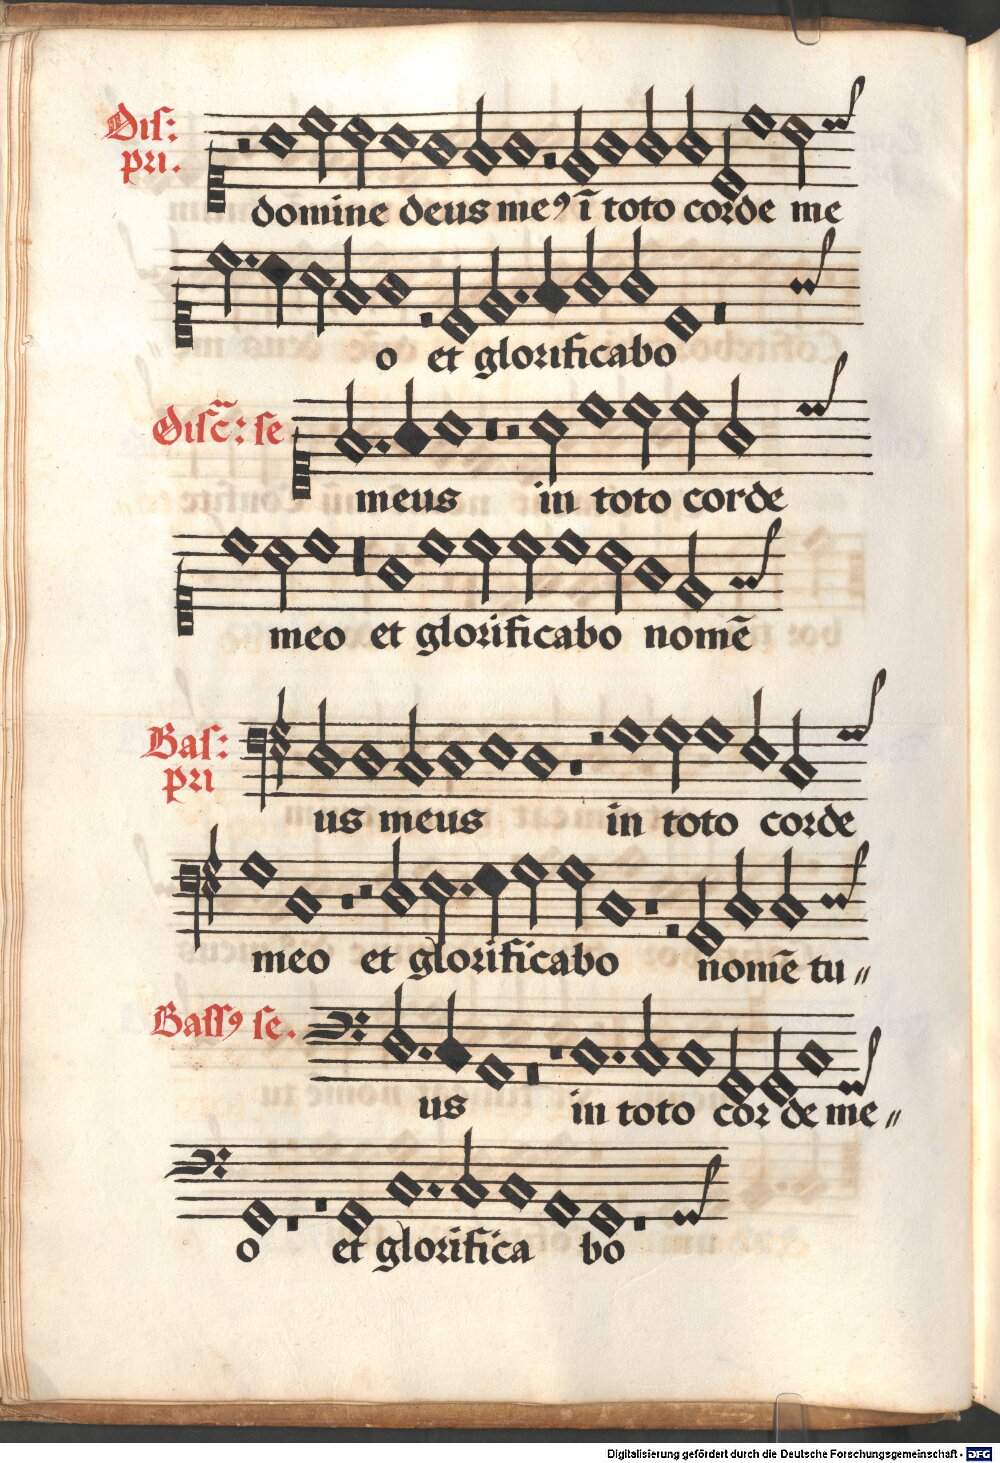 Disc:
pri.
domine deus meꝰ ī toto corde me
o et glorificabo
Discā: se
meus in toto corde
meo et glorificabo nomē
Bas:
pri
us meus in toto corde
meo et glorificabo nomē tu〃
Bassꝰ se.
us in toto cor de me〃
o et glorifica bo
Digitalisierung gefördert durch die Deutsche Forschungsgemeinschaft - DFG